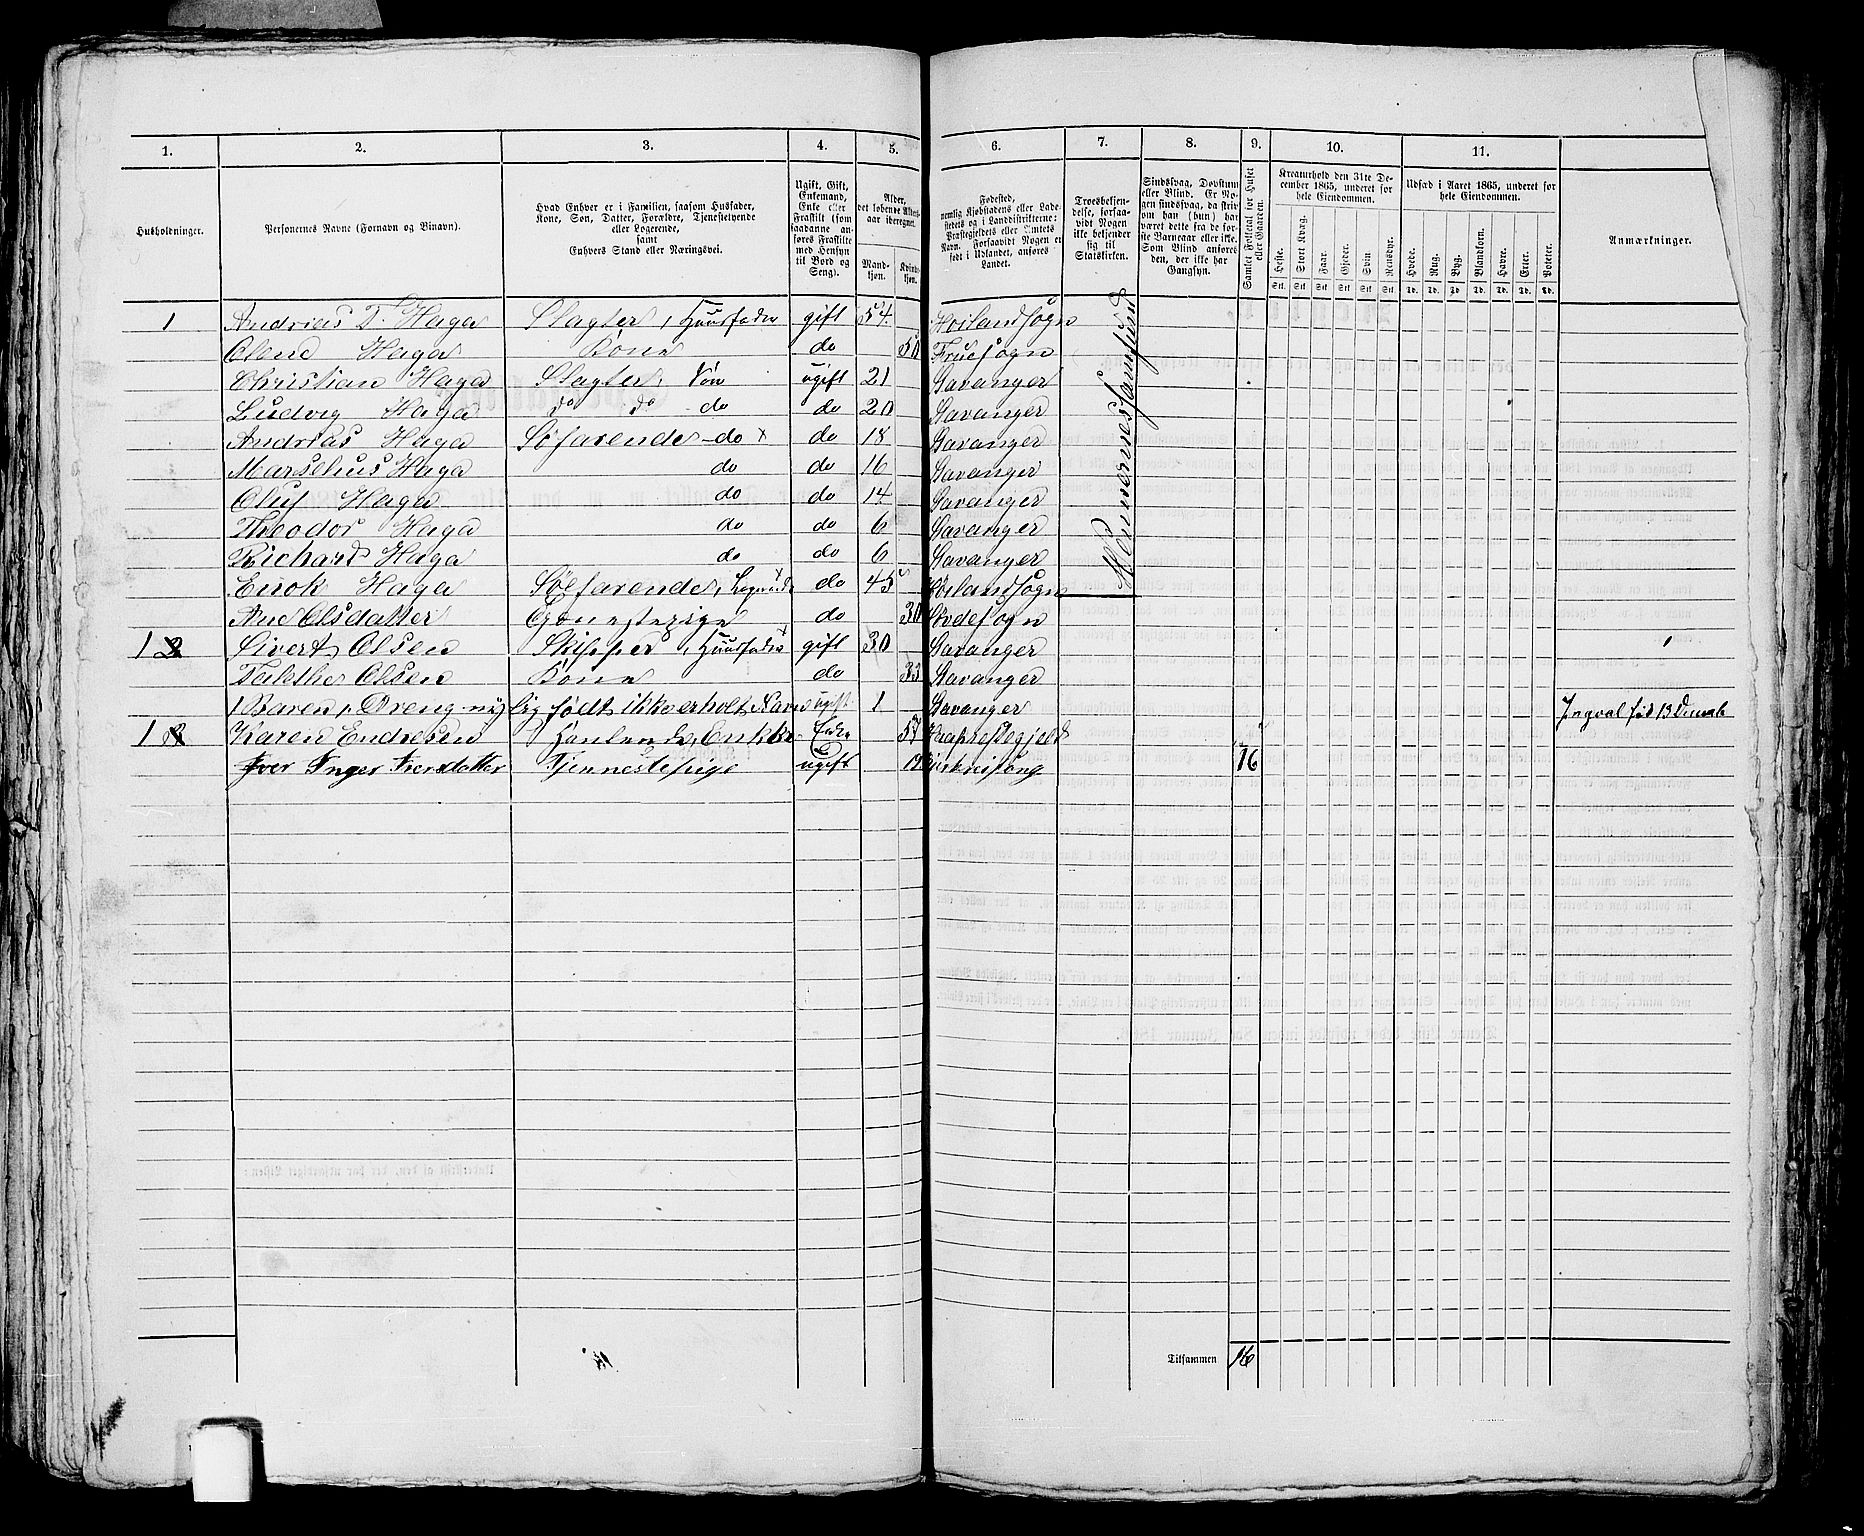 1. 2. 3. 4. 5. 6. 7. 8. 9. 10. 11.
Husholdninger.
Personernes Navne (Fornavn og Binavn).
Hvad Enhver er i Familien, saasom Husfader,
Kone, Søn, Datter, Forældre, Tjenestetyende
eller Logerende,
samt
Enhvers Stand eller Næringsvei.
Ugift, Gift,
Enkemand,
Enke eller
Fraskilt (som
saadanne an-
føres Fraskilte
med Hensyn
til Bord og
Seng).
Alder,
det løbende Alders-
aar iberegnet.
Mand-
kjøn.
Kvind-
kjøn.
Fødested,
nemlig Kjøbstadens eller Lade-
stedets og i Landdistrikterne:
Præstegjeldets eller Amtets
Navn. Forsaavidt Nogen er
født i Udlandet, anføres
Landet.
Troesbekjen-
delse, forsaa-
vidt Nogen
ikke bekjender
sig til
Statskirken.
Sindssvag, Døvstum
eller Blind. Er No-
gen sindssvag, da skriv
om han (hun) har
været dette fra de før-
ste Barneaar eller ikke.
Som Blind anføres
den, der ikke har
Gangsyn.
Samlet Folketal for Huset
eller Gaarden.
Kreaturhold den 31te De-
cember 1865, underet for
hele Eiendommen.
Heste. Stort Kvæg. Faar. Gjeder. Svin. Rensdyr.
Udsæd i Aaret 1865, underet for
hele Eiendommen.
Hvede. Rug. Byg. Blandkorn. Havre. Erter. Poteter.
Anmærkninger.
1 Andrias T. Haga Slagter, Huusfader gift 54 Høilandsogn
Olene Haga Kone do 50 Fruesogn
Christian Haga Slagter Søn ugift 21 Stavanger
Ludvig Haga do do do do 20 Stavanger
Andrias Haga Søfarende do x do 18 Stavanger
Marselius Haga do do 16 Stavanger
Oluf Haga do do 14 Stavanger
Theodor Haga do do 6 Stavanger
Richard Haga do do 6 Stavanger
Enok Haga Søefarende, do 45 Høilandsogn
Ane Olsdatter do 30
1 Sivert Olsen Skipper, Huusfader gift 30 Stavanger
Olsen Kone do 33 Stavanger
1 Baren, Dreng nylig født ikke erholt Navn ugift 1 Stavanger
1 Karen Endresen Enke 57
Inger Iversdatter Tjennestepige ugift 16
Tilsammen 16